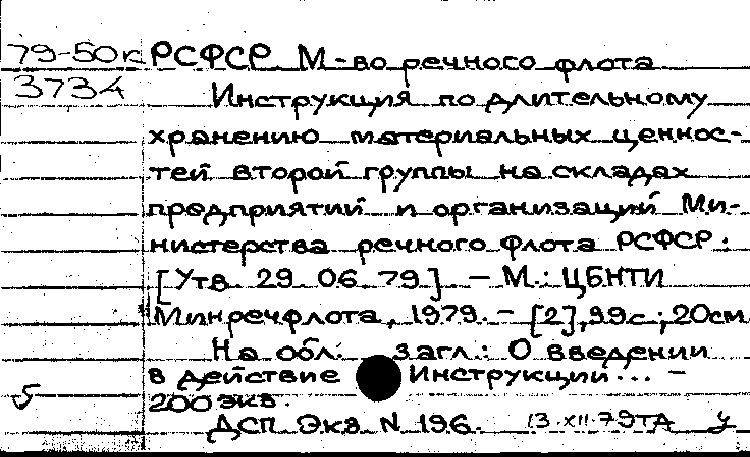 79-50к РСФСР. М-во речного флота
3734
Инструкция по длительному
хранению материальных ценнос-
тей второй группы на складах
предприятий и организаций Ми-
нистерства речного флота РСФСР.
[Утв. 29.06.79]. - М.: ЦБНТИ
Минречфлота, 1979. - [2], 99 с.; 20 см.
На обл. загл.: О введении
в действие Инструкций... -
200 экз.
5
ДСП Экз N 196. 13.XII.79ТА У